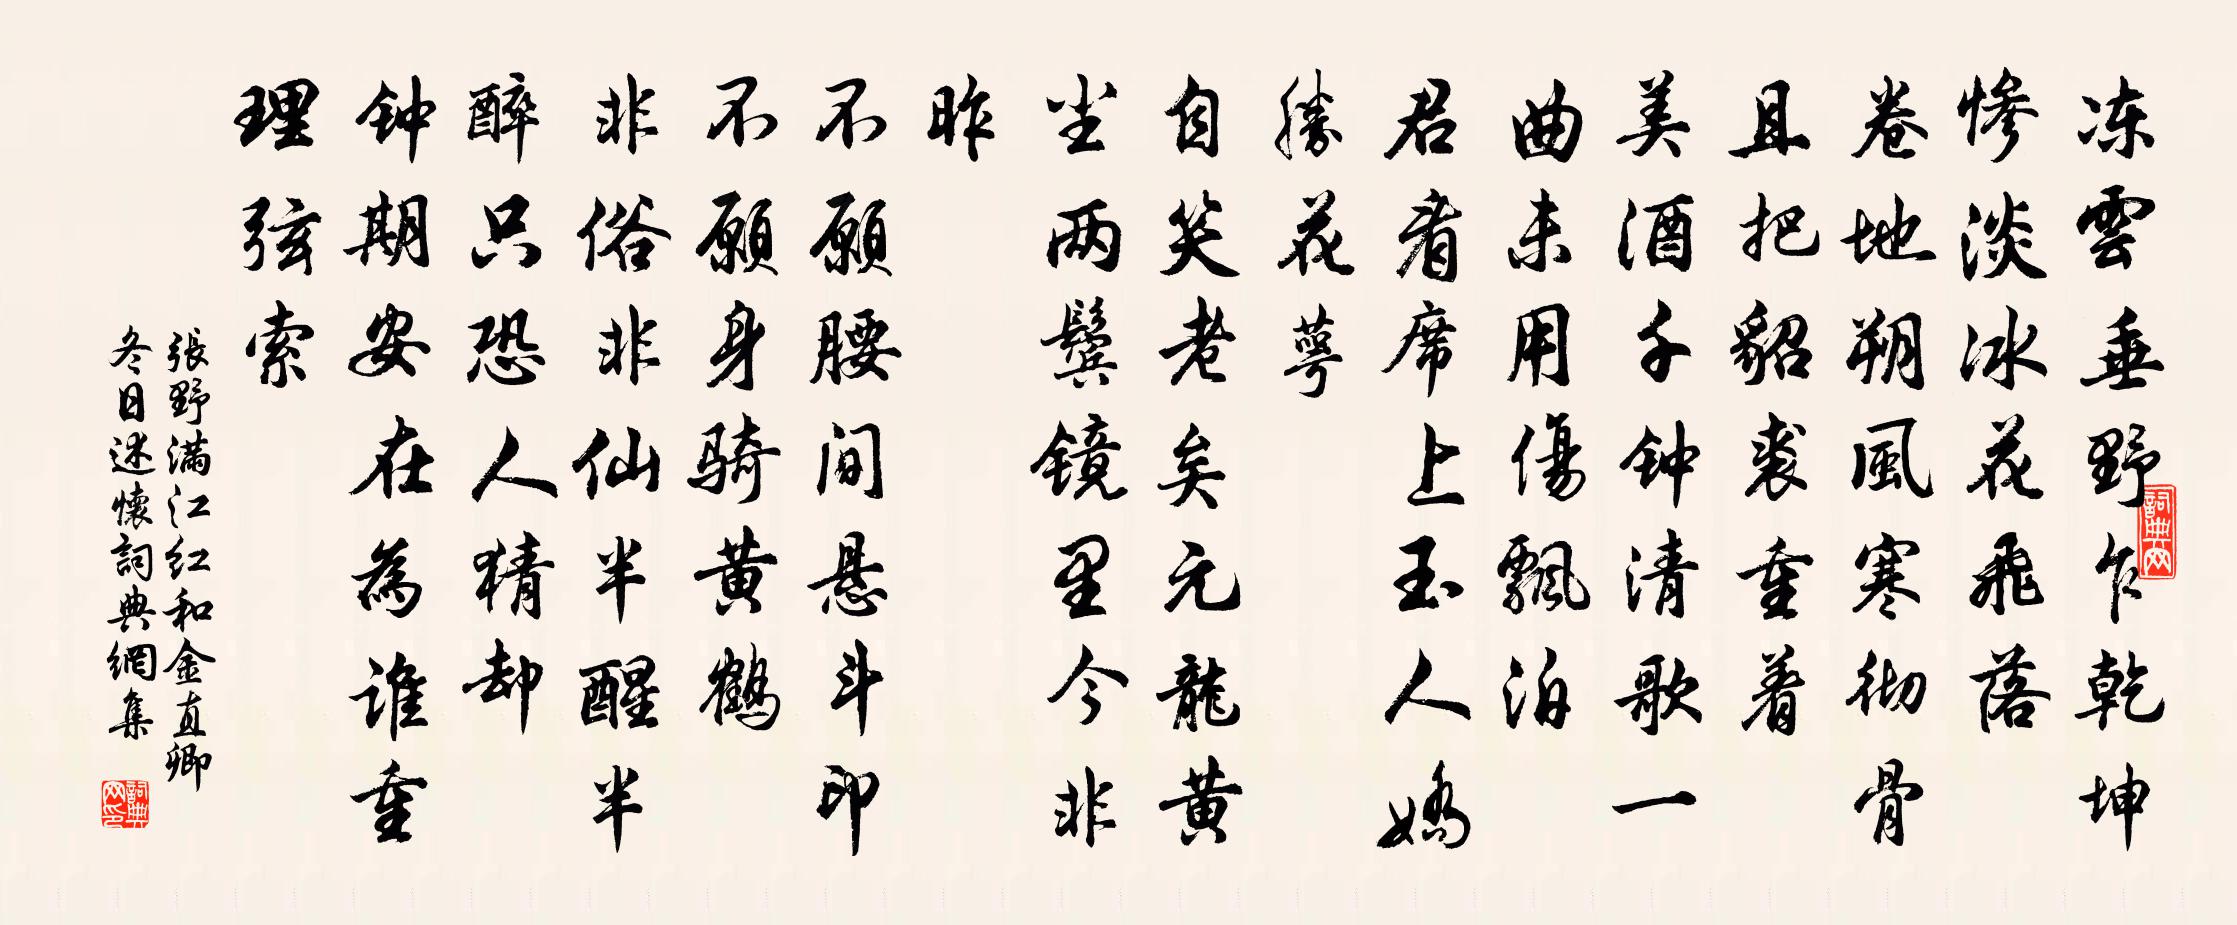 冻雲垂野乍乾坤
惨淡冰花飛落
卷地朔風寒彻骨
且把貂裘重着
美酒千钟清歌一
曲未用傷飄泊
君看席上玉人嬌
勝花萼
自笑老矣元龍黄
尘两鬓镜里今非
昨
不願腰间悬斗印
不願身骑黄鹤
非俗非仙半醒半
醉只恐人猜却
钟期安在為谁重
理弦索
張野满江红和金直卿
冬日述懷詞典網集
詞典网
詞典网印